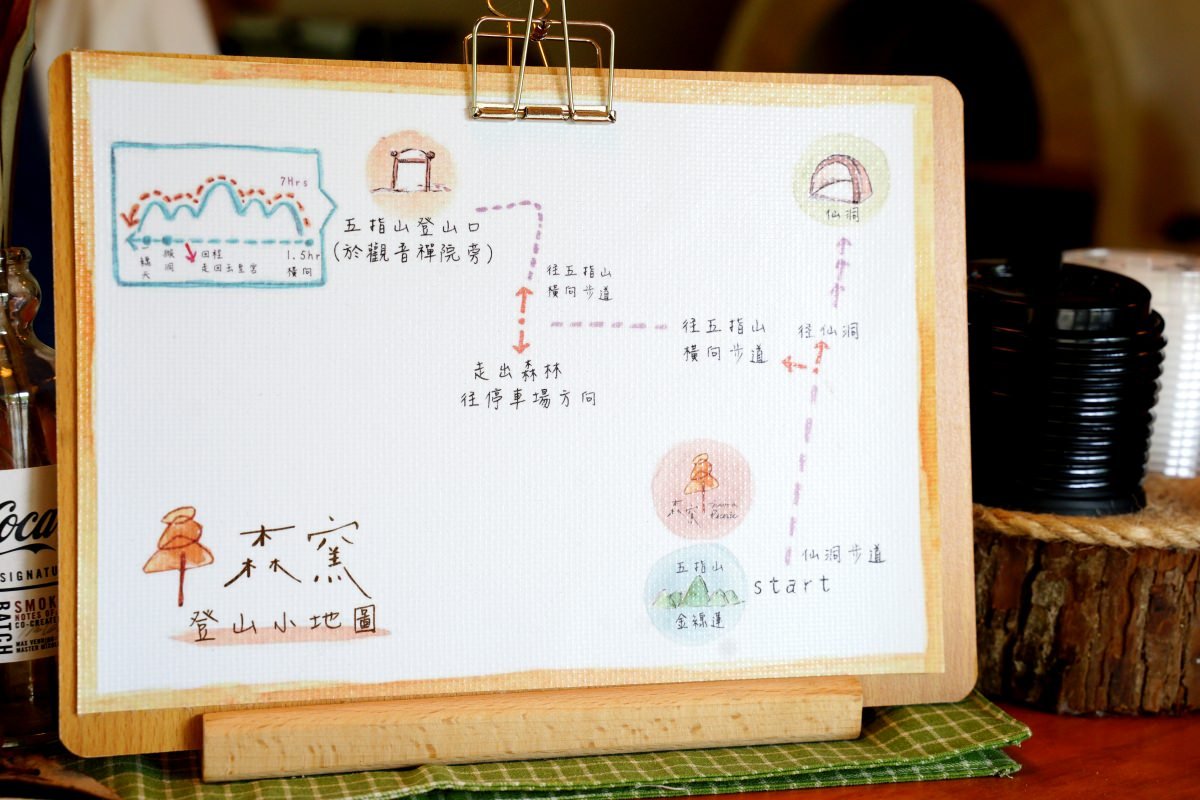 7Hrs
一線天
猴洞
回程
走回玉皇宮
1.5hr
橫向
五指山登山口
(於觀音禪院旁)
往五指山
橫向步道
走出森林
往停車場方向
仙洞
往五指山
橫向步道
往仙洞
森窯
Picnic
仙洞步道
start
五指山
金線蓮
森窯
登山小地圖
Coca
SIGNATU
BATCH
SMOK
NOTES OF
CO-CREATE
MAX VENNING
MASTER MIXOL